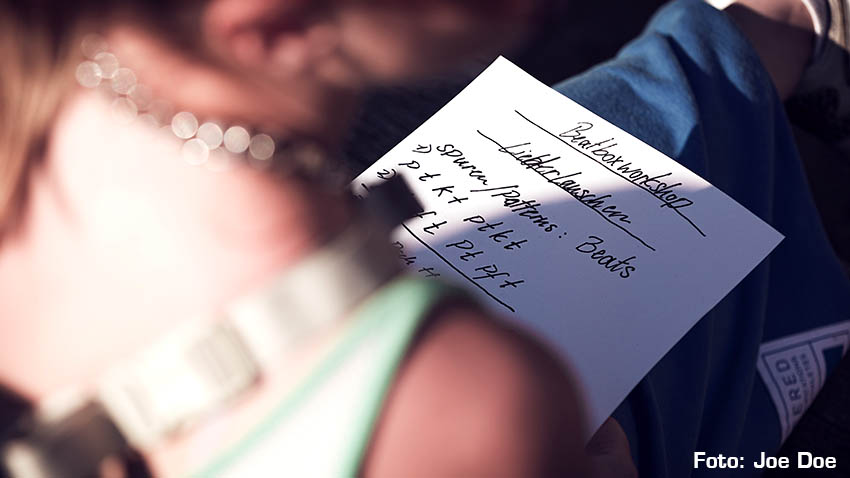 Beatboxworkshop
Liederlauschen
1) Spuren/Patterns: Beats
p t k t p t k t
2) ft pt pft
ERED
Foto: Joe Doe